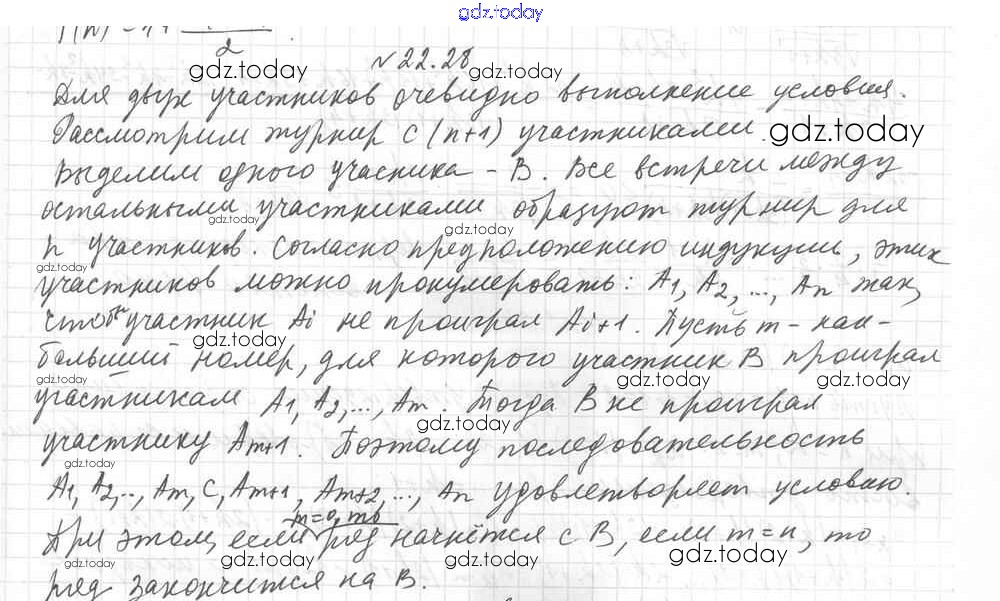 gdz.today
2
№ 22.28
gdz.today gdz.today
Для двух участников очевидно выполнение условия.
Рассмотрим турнир с (n+1) участниками. gdz.today
Выделим одного учасника - В. Все встречи между
остальными участниками образуют турнир для
gdz.today gdz.today
n участников. Согласно предположению индукции, этих
gdz.today
участников можно пронумеровать: A1, A2, ..., An так,
чтобы участник Ai не проиграл Ai+1. Пусть m - наи-
gdz.today gdz.today
больший номер, для которого участник В проиграл
gdz.today gdz.today gdz.today
участникам A1, A2, ..., Am. Тогда В не проиграл
участнику Am+1. Поэтому последовательность
gdz.today
A1, A2, .., Am, C, Am+1, Am+2, ..., An удовлетворяет условию.
m=0, то
При этом, если ряд начнётся с В, если m=n, то
gdz.today gdz.today gdz.today
ряд закончится на В.